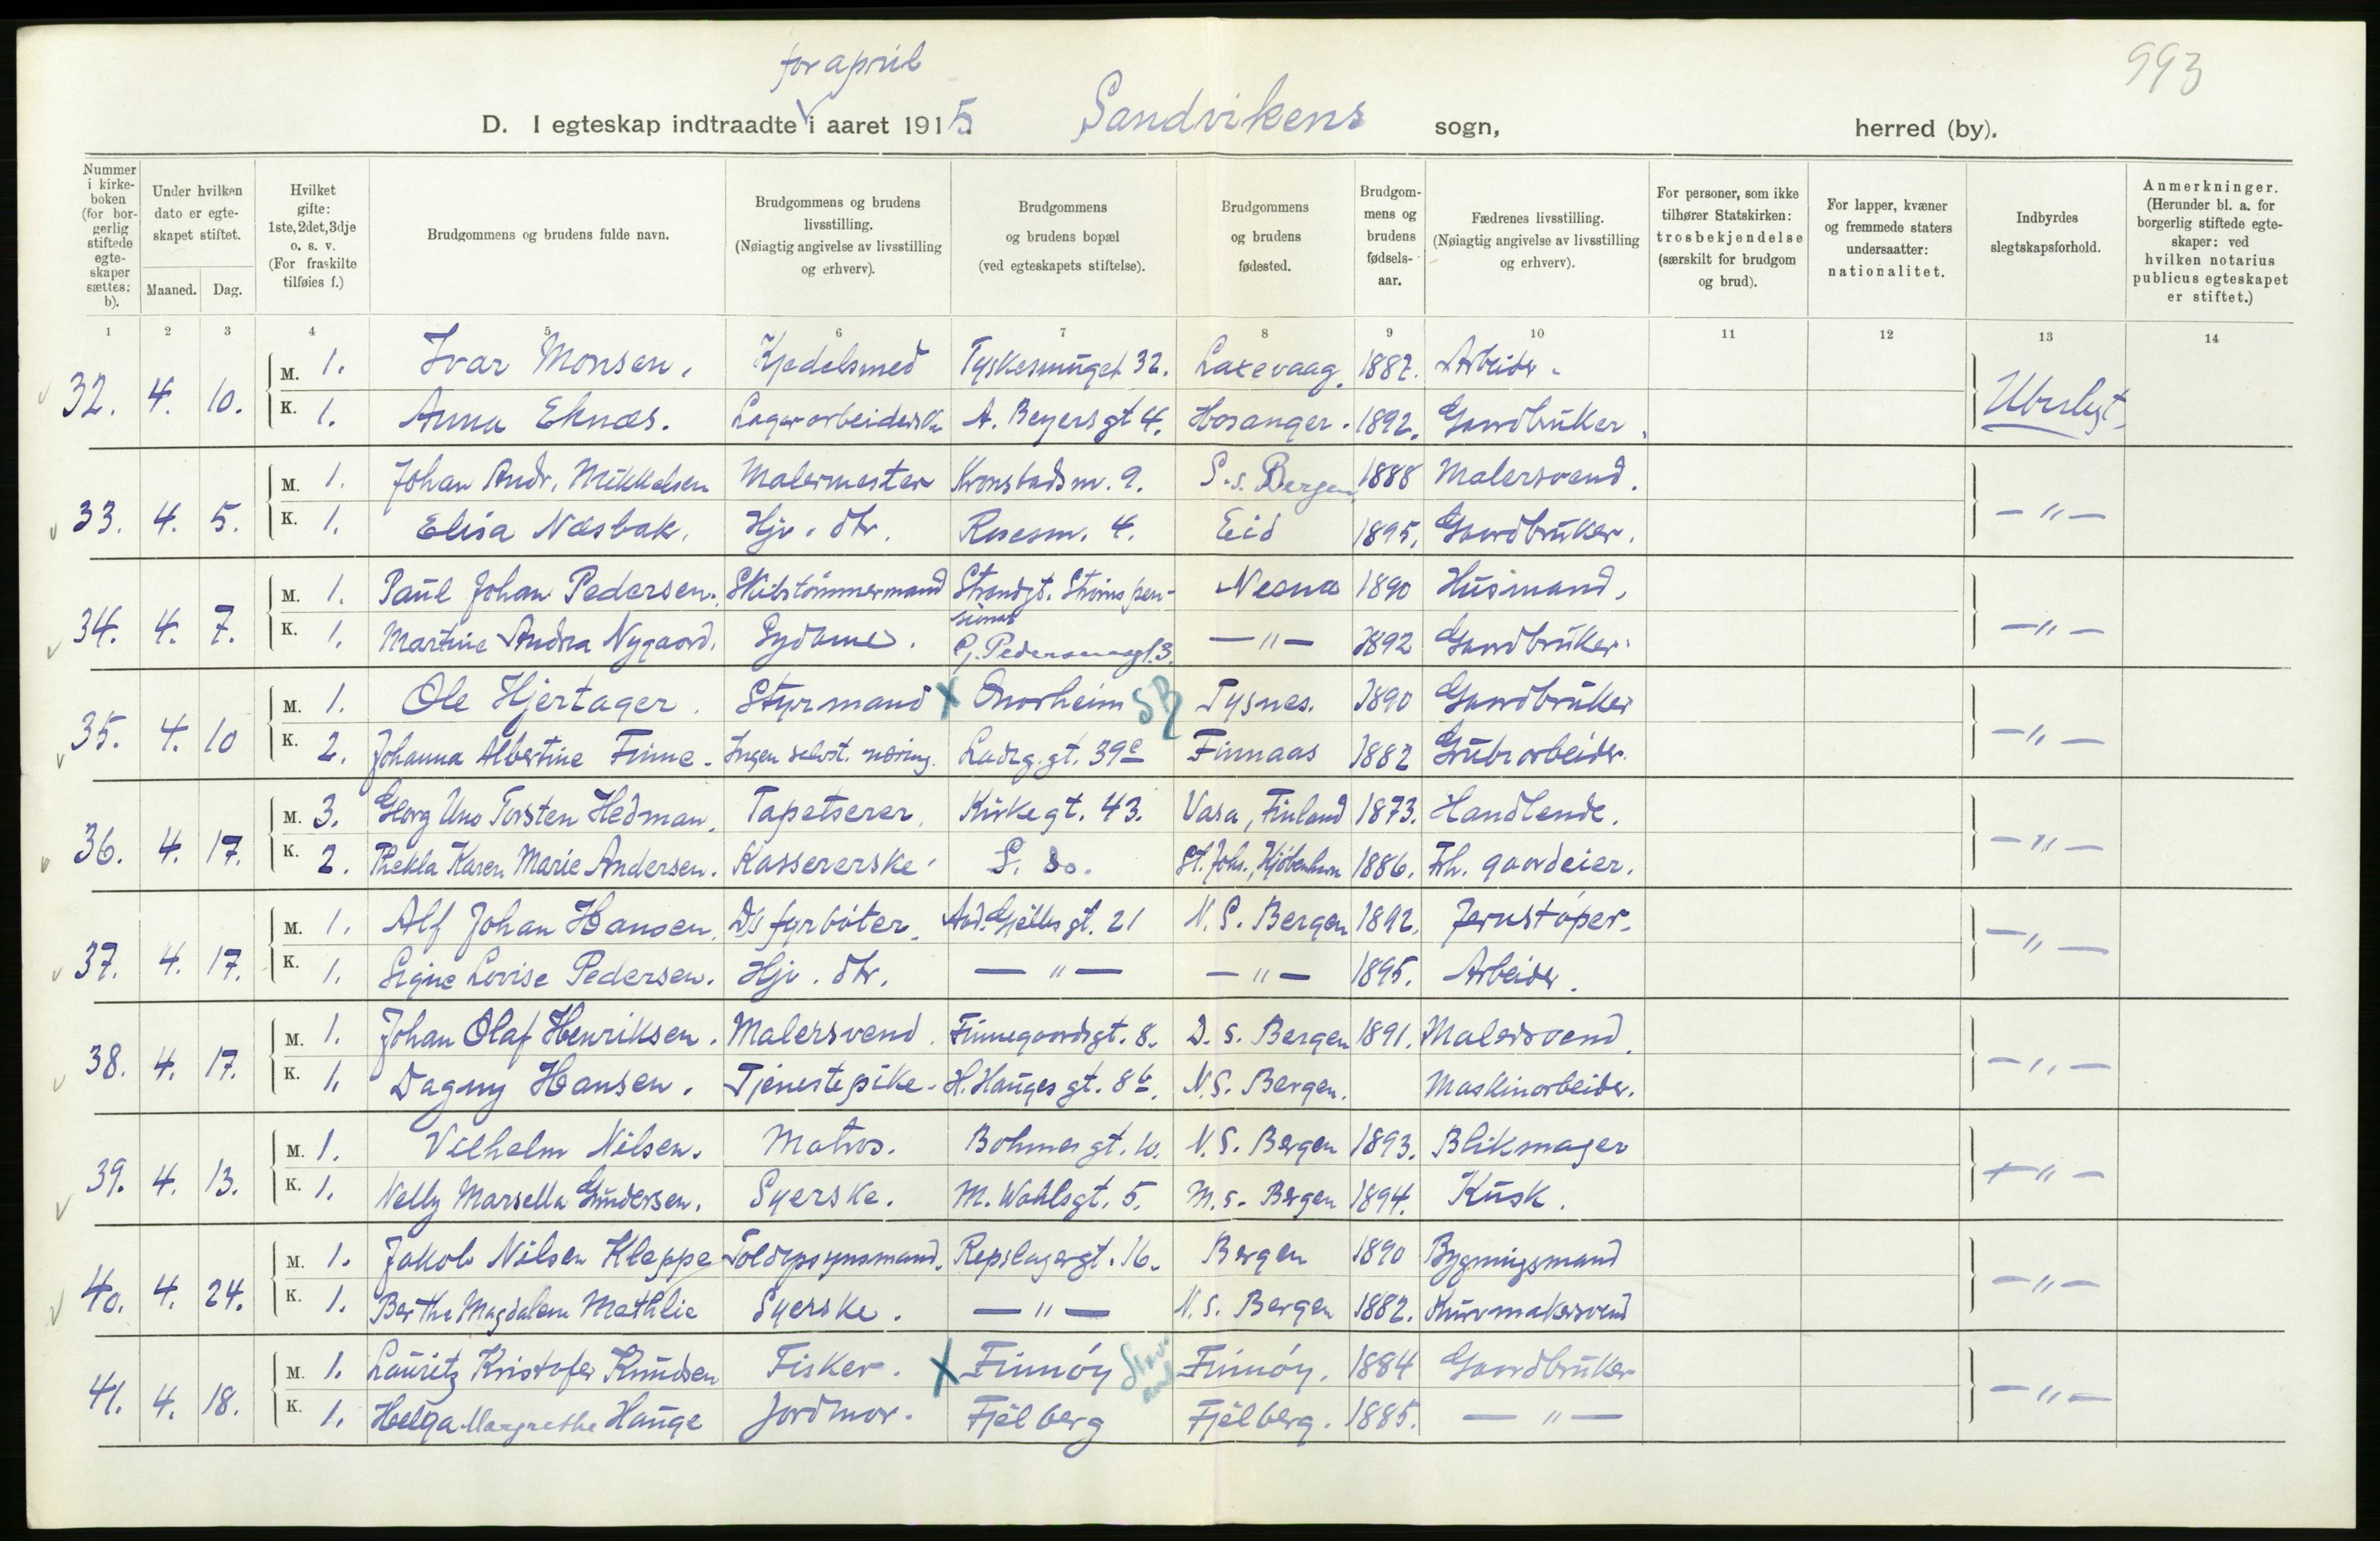 993
for april
D. I egteskap indtraadte i aaret 1915. Sandvikens sogn, herred (by).
Nummer i kirkeboken (for borgerlig stiftede egteskaper sættes: b).
Under hvilken dato er egteskapet stiftet.
Maaned. Dag.
Hvilket gifte: 1ste, 2det, 3dje o. s. v. (For fraskilte tilføies f.)
Brudgommens og brudens fulde navn.
Brudgommens og brudens livsstilling. (Nøiagtig angivelse av livsstilling og erhverv).
Brudgommens og brudens bopæl (ved egteskapets stiftelse).
Brudgommens og brudens fødested.
Brudgommens og brudens fødselsaar.
Fædrenes livsstilling. (Nøiagtig angivelse av livsstilling og erhverv).
For personer, som ikke tilhører Statskirken: trosbekjendelse (særskilt for brudgom og brud).
For lapper, kvæner og fremmede staters undersaatter: nationalitet.
Indbyrdes slegtskapsforhold.
Anmerkninger. (Herunder bl. a. for borgerlig stiftede egteskaper: ved hvilken notarius publicus egteskapet er stiftet.)
1 2 3 4 5 6 7 8 9 10 11 12 13 14
M. 1. Ivar Monsen. Kjedelsmed Tyskesmuget 32. Laxevaag. 1882. Arbeider.
32. 4. 10. Ubeslegt.
K. 1. Anna Eknæs. Lagerarbeiderske A. Beyersgt 4. Hosanger. 1892. Gaardbruker.
M. 1. Johan Andr. Mikkelsen Malermester Kronstadsm. 9. S.s. Bergen 1888 Malersvend.
33. 4. 5. — " —
K. 1. Elisa Næsbak. Hjv. dtr. Rosesm. 4. Eid 1895. Gaardbruker.
M. 1. Paul Johan Pedersen. Skibstömmermand Strandgt. Ströms pensionat Nesna 1890 Husmand.
34. 4. 7. — " —
K. 1. Martine Andrea Nygaard. Sydame. G. Pedersensgt. 3. — " — 1892 Gaardbruker.
M. 1. Ole Hjertager. Styrmand X Onarheim SB Tysnes. 1890 Gaardbruker
35. 4. 10 — " —
K. 2. Johanna Albertine Finne. Ingen selvst. næring. Ladeg.gt. 39c Finnaas 1882 Grubearbeider.
M. 3. Georg Uno Torsten Hedman. Tapetserer. Kirkegt. 43. Vasa, Finland 1873. Handlende.
36. 4. 17. — " —
K. 2. Thekla Karen Marie Andersen. Kassererske. S. do. St. Johs., Kjöbenhavn 1886. Fh. gaardeier.
M. 1. Alf Johan Hansen. D/S fyrböter. And. Gjelles gt. 21 N. S. Bergen 1892. Jernstöper.
37. 4. 17. — " —
K. 1. Signe Lovise Pedersen. Hjv. dtr. — " — — " — 1895. Arbeider.
M. 1. Johan Olaf Henriksen. Malersvend. Finnegaardsgt. 8. D. S. Bergen 1891. Malersvend.
38. 4. 17. — " —
K. 1. Dagny Hansen. Tjenestepike. H. Hauges gt. 8b. N. S. Bergen. Maskinarbeider.
M. 1. Vilhelm Nilsen. Matros. Bohmes gt. 10. N. S. Bergen 1893. Blikmager
39. 4. 13. — " —
K. 1. Nelly Marsella Gundersen. Syerske. M. Wahlsgt. 5. M. S. Bergen 1894. Kusk.
M. 1. Jakob Nilsen Kleppe Toldopsynsmand. Repslagergt. 16. Bergen 1890 Bygningsmand
40. 4. 24. — " —
K. 1. Berthe Magdalene Mathilie Syerske. — " — N. S. Bergen 1882. Kurvmakersvend
M. 1. Lauritz Kristofer Knudsen Fisker. X Finnöy Finnöy. 1884 Gaardbruker
41. 4. 18. — " —
K. 1. Helga Margrethe Hauge Jordmor. Fjelberg Fjelberg. 1885. — " —